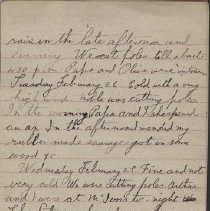 rain in the late afternoon and
evening. We cut poles till about
4:30 p.m. Papa and Olive were in town
Tuesday February 26. Cold with a very
high wind. Both was cutting poles
In the morning Papa and I sharpened
an ax. In the afternoon I mended my
rubber made sausage got in some
wood &c.
Wednesday February 27 Fine and not
very cold. We was cutting poles. Arthur
and I went at Mr. to-night